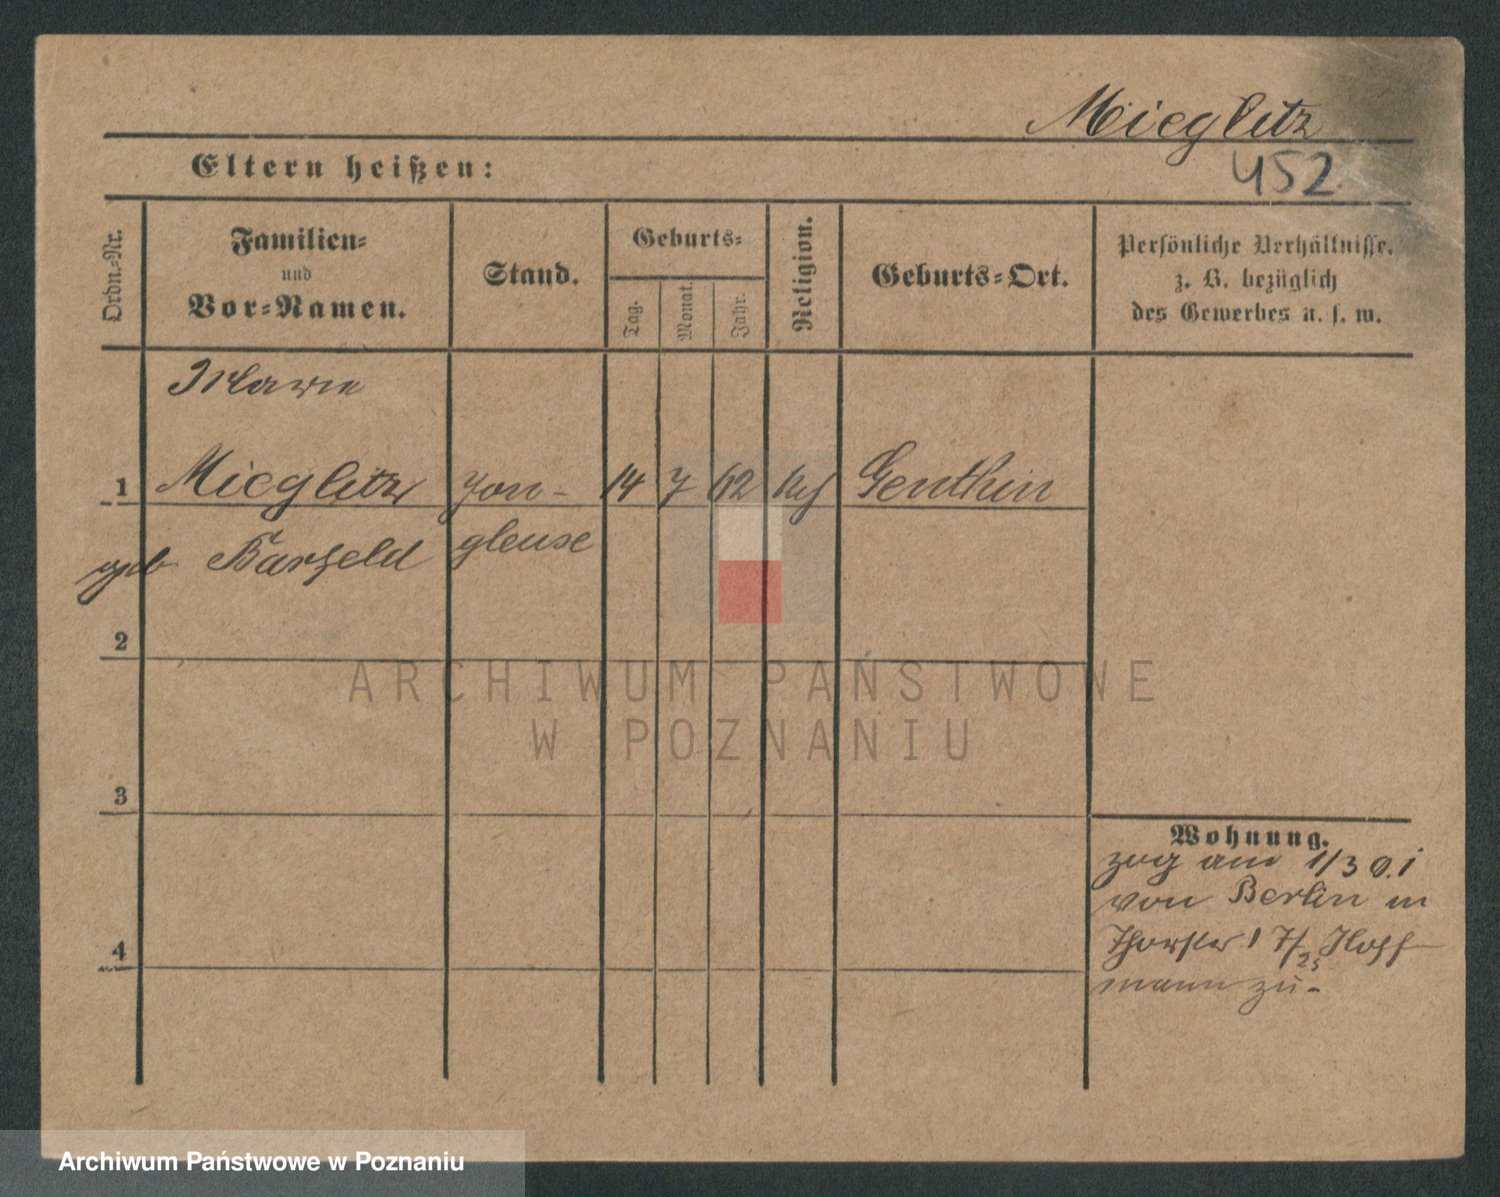 Mieglitz
452
Eltern heißen:
Ordn.-Nr.
Familien-
und
Vor-Namen.
Stand.
Geburts-
Tag.
Monat.
Jahr.
Religion.
Geburts-Ort.
Persönliche Verhältnisse,
z. B. bezüglich
des Gewerbes u. s. w.
Marie
1 Mieglitz Jon- 14 7 62 Genthin
geb Barfeld gleuse
2
3
4
Wohnung.
zog am 1/3 01
von Berlin in
7/25 Hoff
mann zu-
ARCHIWUM PAŃSTWOWE
W POZNANIU
Archiwum Państwowe w Poznaniu